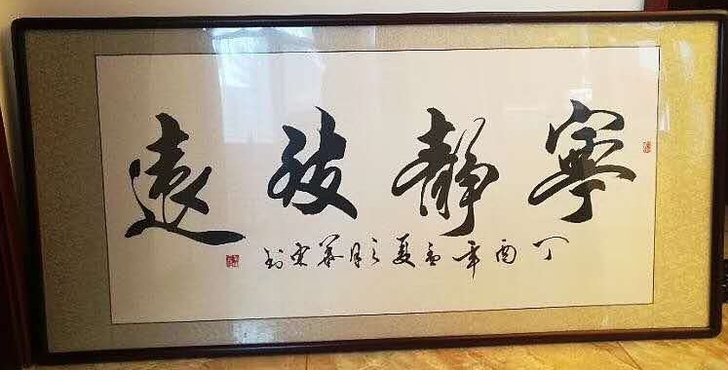 寧靜致遠
丁酉年孟夏之月